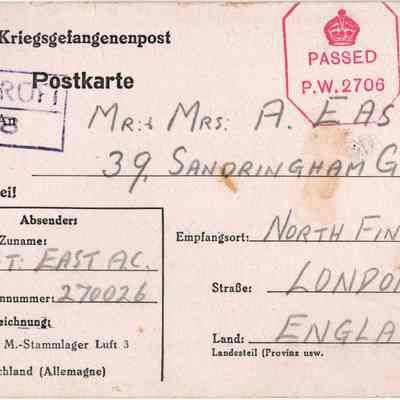 Kriegsgefangenenpost
PASSED
P.W. 2706
Postkarte
An
MR. & MRS. A. EAS
39, SANDRINGHAM G
eil
8
Absender:
Zuname:
T: EAST A.C.
nnummer: 270026
zeichnung:
M.-Stammlager Luft 3
chland (Allemagne)
Empfangsort: NORTH FIN
Straße: LONDO
Land: ENGLA
Landesteil (Provinz usw.